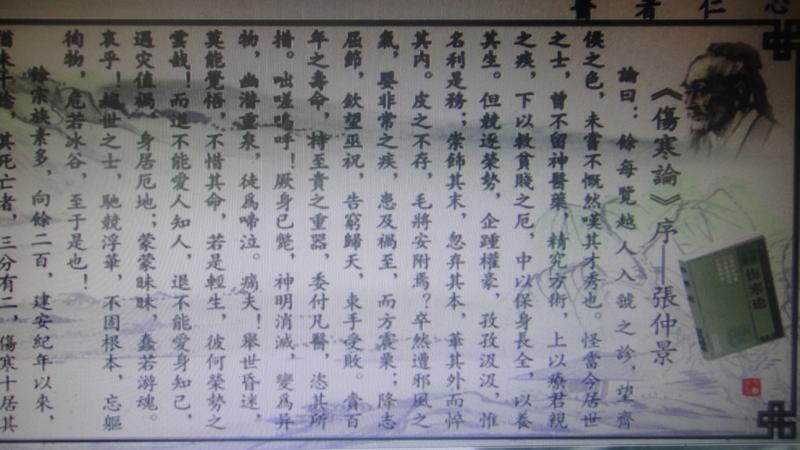 仁者
《傷寒論》序——張仲景
論曰：餘每覽越人入虢之診，望齊
侯之色，未嘗不慨然嘆其才秀也。怪當今居世
之士，曾不留神醫藥，精究方術，上以療君親
之疾，下以救貧賤之厄，中以保身長全，以養
其生。但競逐榮勢，企踵權豪，孜孜汲汲，惟
名利是務；崇飾其末，忽弃其本，華其外而悴
其内。皮之不存，毛將安附焉？卒然遭邪風之
氣，嬰非常之疾，患及禍至，而方震栗；降志
屈節，欽望巫祝，告窮歸天，束手受敗。賫百
年之壽命，持至貴之重器，委付凡醫，恣其所
措。咄嗟嗚呼！厥身已斃，神明消滅，變爲异
物，幽潛重泉，徒爲啼泣。痛夫！舉世昏迷，
莫能覺悟，不惜其命，若是輕生，彼何榮勢之
雲哉！而進不能愛人知人，退不能愛身知己，
遇灾值禍，身居厄地；蒙蒙昧昧，蠢若游魂。
哀乎！趨世之士，馳競浮華，不固根本，忘軀
徇物，危若冰谷，至于是也！
餘宗族素多，向餘二百，建安紀年以來，
猶未十稔，其死亡者，三分有二，傷寒十居其
伤寒论